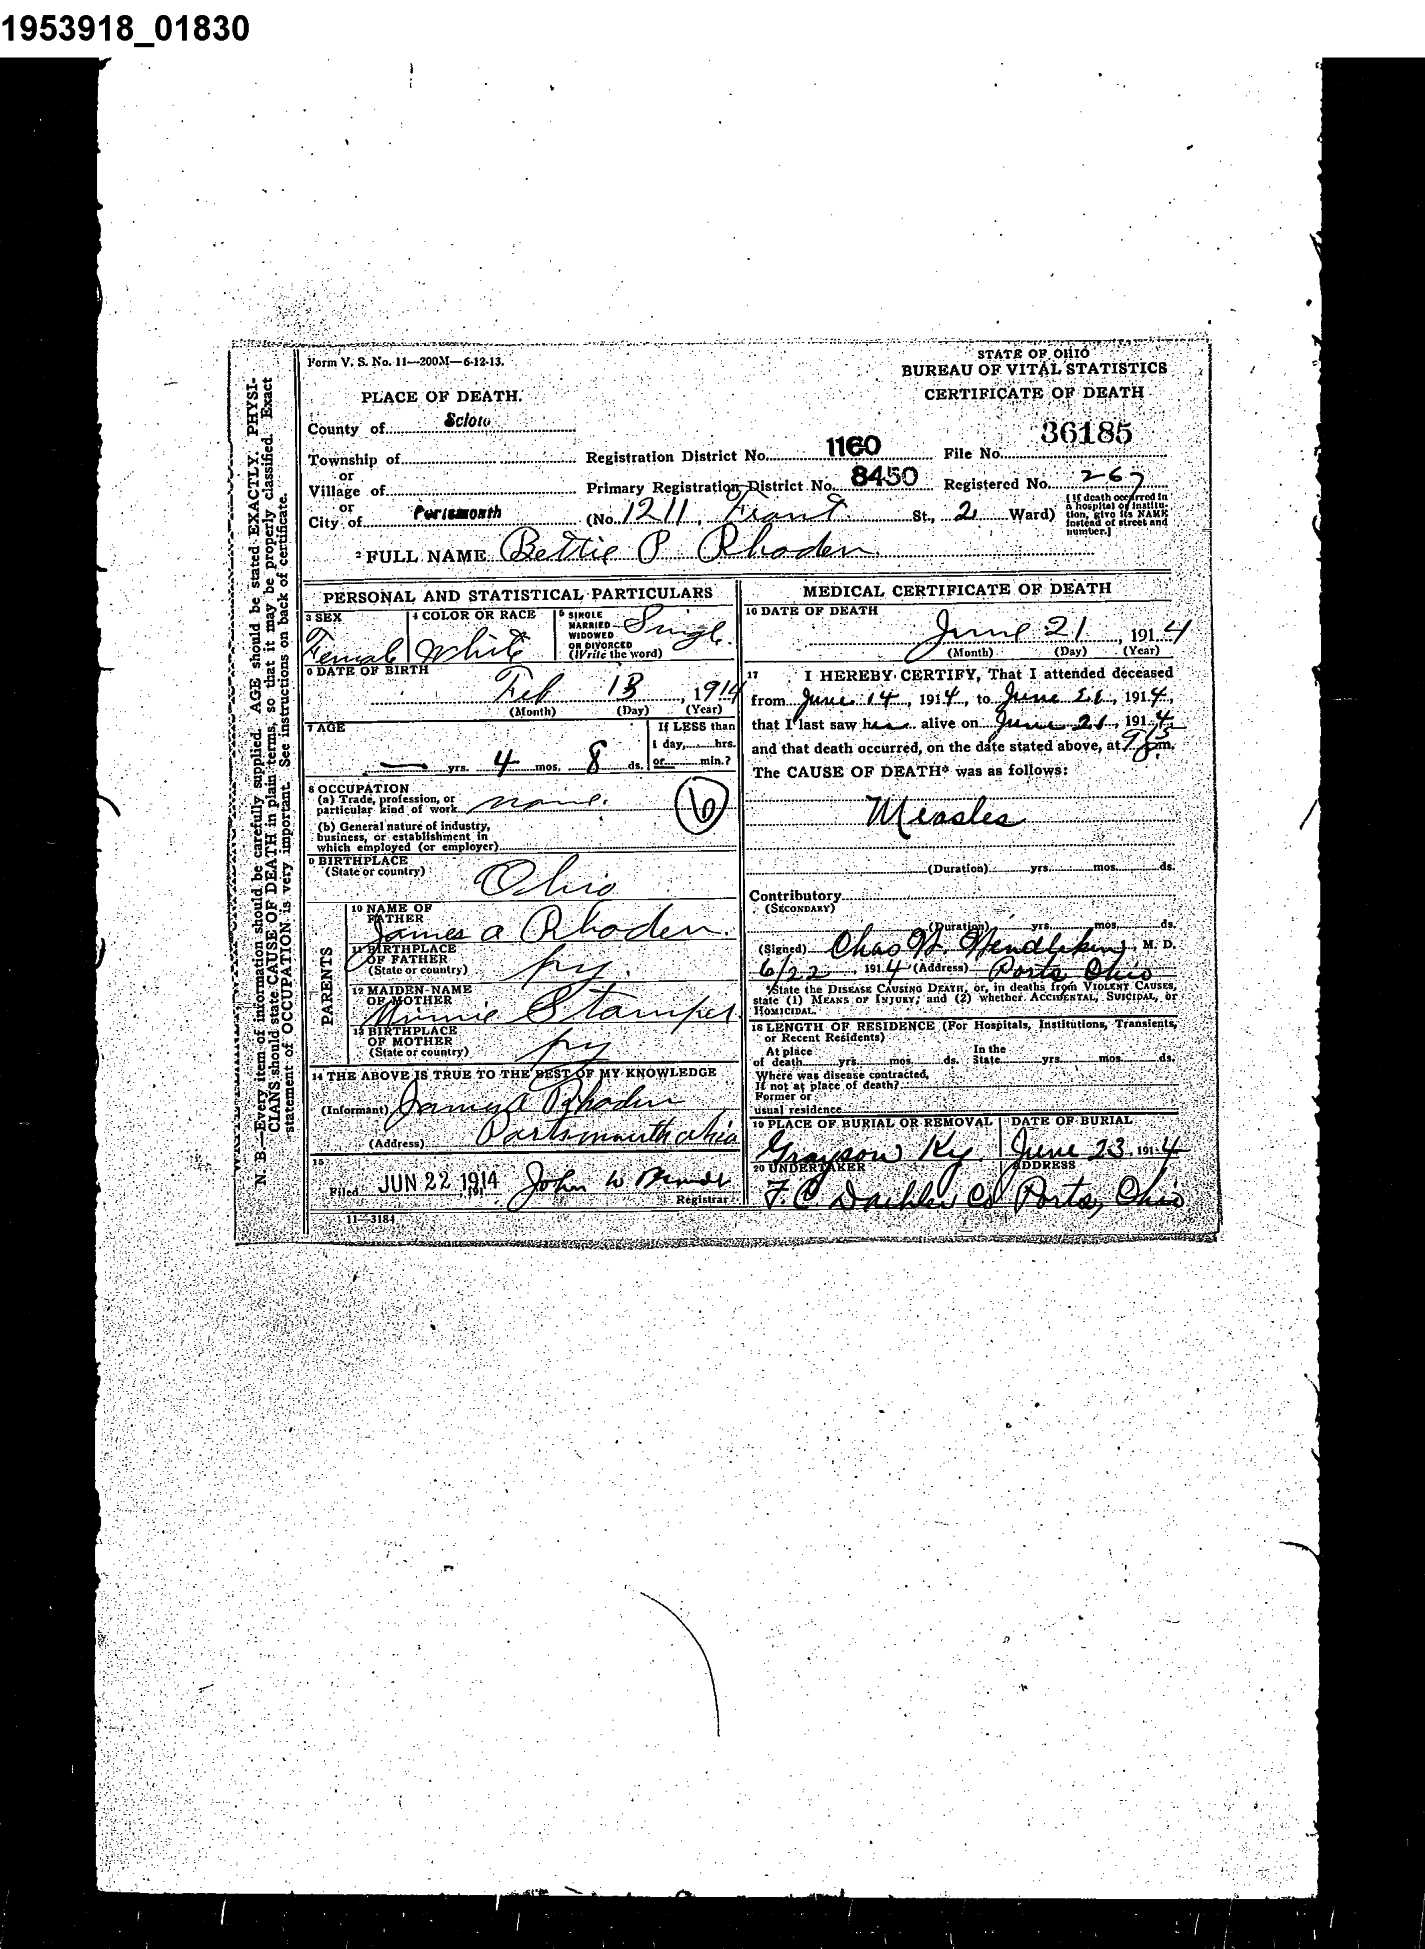 1953918_01830
Form V. S. No. 11—200M—6-12-13.
STATE OF OHIO
BUREAU OF VITAL STATISTICS
CERTIFICATE OF DEATH
PLACE OF DEATH.
County of Scioto
Township of
or
Village of
or
City of Portsmouth
Registration District No. 1160
File No. 36185
Primary Registration District No. 8450
Registered No. 267
(No. 1211, Front St., 2 Ward)
[If death occurred in a hospital or institution, give its NAME instead of street and number.]
2 FULL NAME Bettie P Rhoden
PERSONAL AND STATISTICAL PARTICULARS
3 SEX
Femal
4 COLOR OR RACE
White
5 SINGLE
MARRIED
WIDOWED
OR DIVORCED
(Write the word)
Singl
6 DATE OF BIRTH
Feb 13, 1914
(Month) (Day) (Year)
7 AGE
— yrs. 4 mos. 8 ds.
If LESS than
1 day, hrs.
or min.?
8 OCCUPATION
(a) Trade, profession, or
particular kind of work none.
6
(b) General nature of industry,
business, or establishment in
which employed (or employer)
9 BIRTHPLACE
(State or country)
Ohio
PARENTS
10 NAME OF
FATHER
James A Rhoden.
11 BIRTHPLACE
OF FATHER
(State or country)
Ky.
12 MAIDEN NAME
OF MOTHER
Minnie Stamper
13 BIRTHPLACE
OF MOTHER
(State or country)
Ky
14 THE ABOVE IS TRUE TO THE BEST OF MY KNOWLEDGE
(Informant) James A Rhoden
(Address) Portsmouth Ohio
15
Filed JUN 22 1914, 191 John W
Registrar
11—3184
MEDICAL CERTIFICATE OF DEATH
16 DATE OF DEATH
June 21, 1914
(Month) (Day) (Year)
17 I HEREBY CERTIFY, That I attended deceased
from June 14, 1914, to June 21, 1914,
that I last saw her alive on June 21, 1914,
and that death occurred, on the date stated above, at 9 15 P.m.
The CAUSE OF DEATH* was as follows:
Measles
(Duration) yrs. mos. ds.
Contributory
(SECONDARY)
(Duration) yrs. mos. ds.
(Signed) Chas W. , M. D.
6/22, 1914 (Address) Ports Ohio
*State the DISEASE CAUSING DEATH, or, in deaths from VIOLENT CAUSES,
state (1) MEANS OF INJURY; and (2) whether ACCIDENTAL, SUICIDAL, or
HOMICIDAL.
18 LENGTH OF RESIDENCE (For Hospitals, Institutions, Transients,
or Recent Residents)
At place
of death yrs. mos. ds.
In the
State yrs. mos. ds.
Where was disease contracted,
If not at place of death?
Former or
usual residence
19 PLACE OF BURIAL OR REMOVAL
Grayson Ky.
DATE OF BURIAL
June 23, 1914
20 UNDERTAKER
F. C. Daehler Co
ADDRESS
Ports, Ohio
N. B.—Every item of information should be carefully supplied. AGE should be stated EXACTLY. PHYSI-
CIANS should state CAUSE OF DEATH in plain terms, so that it may be properly classified. Exact
statement of OCCUPATION is very important. See instructions on back of certificate.